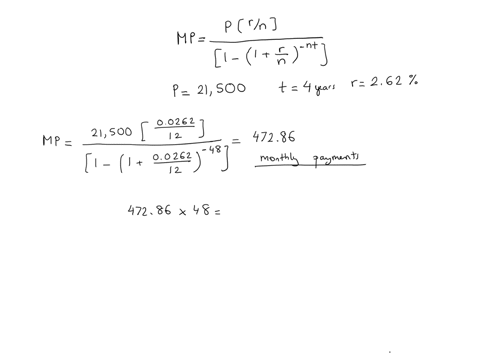 MP = P[r/n] / [1 - (1 + r/n)^-nt]
P = 21,500 t = 4 years r = 2.62 %
MP = 21,500 [0.0262/12] / [1 - (1 + 0.0262/12)^-48] = 472.86
monthly payments
472.86 × 48 =